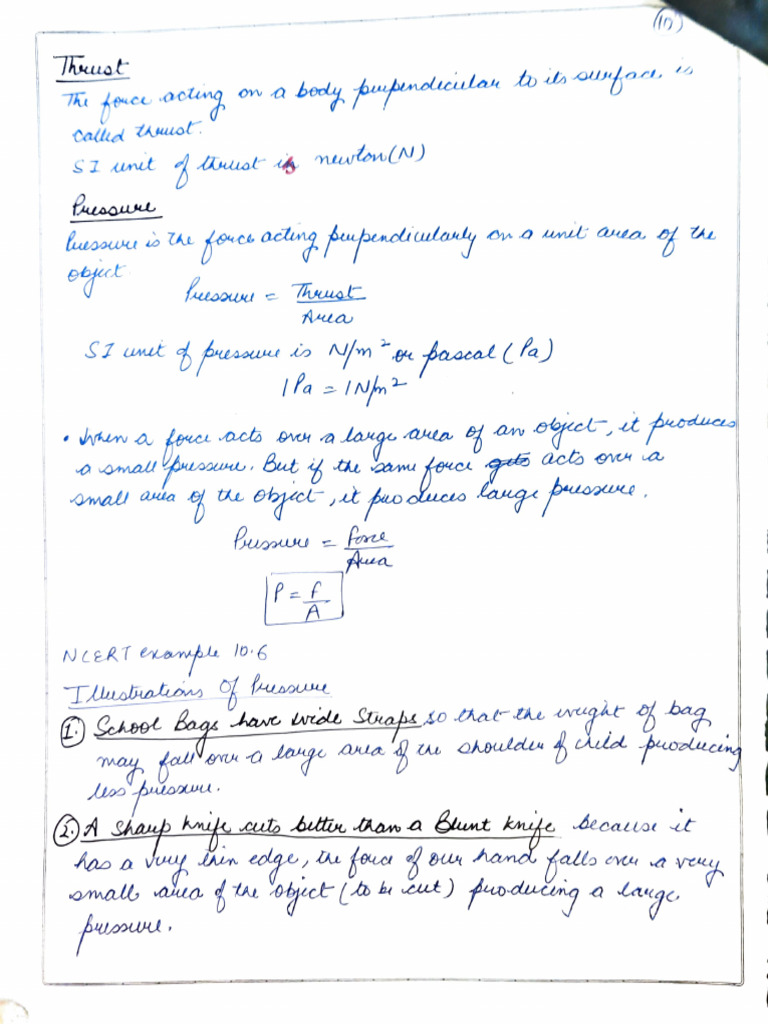 (10)
Thrust
The force acting on a body perpendicular to its surface is
called thrust.
SI unit of thrust is newton (N)
Pressure
Pressure is the force acting perpendicularly on a unit area of the
object.
Pressure = Thrust
Area
SI unit of pressure is N/m² or pascal (Pa)
1 Pa = 1 N/m²
• When a force acts over a large area of an object, it produces
a small pressure. But if the same force gets acts over a
small area of the object, it produces large pressure.
Pressure = force
Area
P = F
A
NCERT example 10.6
Illustrations Of Pressure
1. School Bags have wide Straps so that the weight of bag
may fall over a large area of the shoulder of child producing
less pressure.
2. A sharp knife cuts better than a Blunt knife because it
has a very thin edge, the force of our hand falls over a very
small area of the object (to be cut) producing a large
pressure.